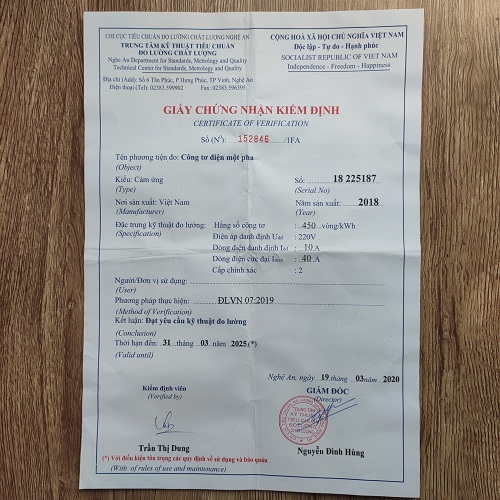 CHI CỤC TIÊU CHUẨN ĐO LƯỜNG CHẤT LƯỢNG NGHỆ AN
TRUNG TÂM KỸ THUẬT TIÊU CHUẨN
ĐO LƯỜNG CHẤT LƯỢNG
Nghe An Department for Standards, Metrology and Quality
Technical Center for Standards, Metrology and Quality
Địa chỉ (Add): Số 6 Tân Phúc, P Hưng Phúc, TP Vinh, Nghệ An
Điện thoại (Tel): 02383.599902 Fax: 02383.596395
CỘNG HOÀ XÃ HỘI CHỦ NGHĨA VIỆT NAM
Độc lập - Tự do - Hạnh phúc
SOCIALIST REPUBLIC OF VIET NAM
Independence - Freedom - Happiness
GIẤY CHỨNG NHẬN KIỂM ĐỊNH
CERTIFICATE OF VERIFICATION
Số (N°): 152846 /1FA
Tên phương tiện đo: Công tơ điện một pha
(Object)
Kiểu: Cảm ứng Số: 18 225187
(Type) (Serial No)
Nơi sản xuất: Việt Nam Năm sản xuất: 2018
(Manufacturer) (Year)
Đặc trưng kỹ thuật đo lường: Hằng số công tơ : 450 vòng/kWh
(Specification) Điện áp danh định : 220V
Dòng điện danh định : 10 A
Dòng điện cực đại : 40 A
Cấp chính xác : 2
Người/Đơn vị sử dụng:
(User)
Phương pháp thực hiện: ĐLVN 07:2019
(Method of Verification)
Kết luận: Đạt yêu cầu kỹ thuật đo lường
(Conclusion)
Thời hạn đến: 31 tháng 03 năm 2025(*)
(Valid until)
Nghệ An, ngày 19 tháng 03 năm 2020
Kiểm định viên
(Verified by)
GIÁM ĐỐC
(Director)
TRUNG TÂM
KỸ THUẬT
TIÊU CHUẨN
ĐO LƯỜNG
CHẤT LƯỢNG
Trần Thị Dung
Nguyễn Đình Hùng
(*) Với điều kiện tôn trọng các quy định về sử dụng và bảo quản
(With of rules of use and maintenance)